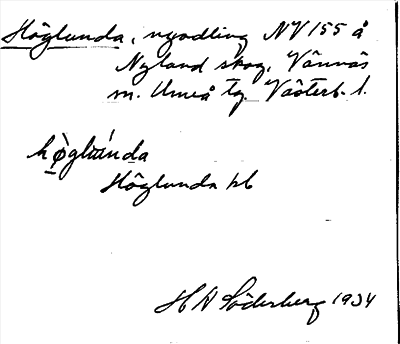 Höglunda, nyodling NV 155 å
Nyland skog, Vännäs
m. Umeå tg. Västerb. l.
hø̀glúnda
Höglunda kb
H A Söderberg 1934